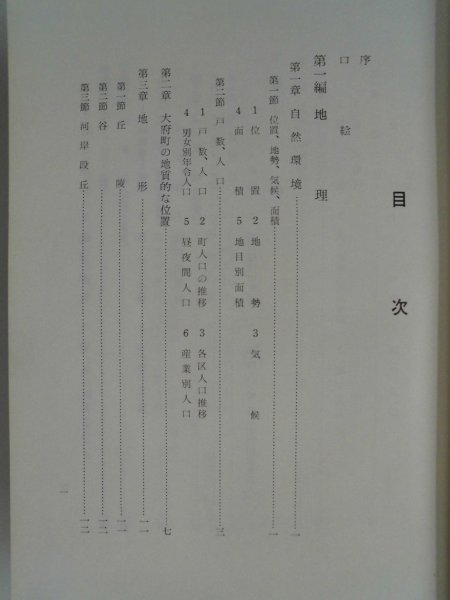 目次
序
口絵
第一編 地理
第一章 自然環境……一
第一節 位置、地勢、気候、面積……一
1 位置 2 地勢 3 気候
4 面積 5 地目別面積
第二節 戸数、人口……三
1 戸数、人口 2 町人口の推移 3 各区人口推移
4 男女別年令人口 5 昼夜間人口 6 産業別人口
第二章 大府町の地質的な位置……七
第三章 地形……一一
第一節 丘陵……一一
第二節 谷……一二
第三節 河岸段丘……一二
一